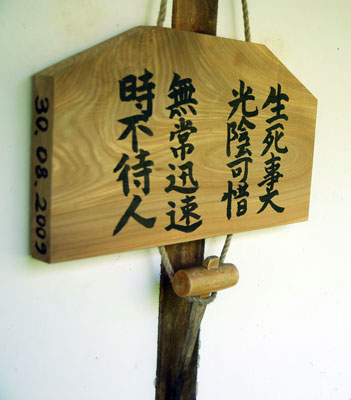 生死事大
光陰可惜
無常迅速
時不待人
30.08.2009